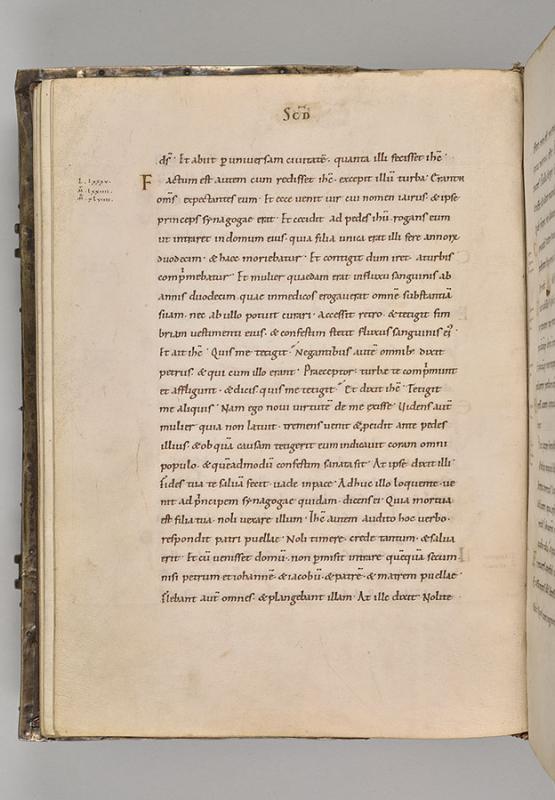 SCD̄
L. lxxxv.
M̄. lxxiiii.
M̄. xlviiii.
ds̄. Et abiit p̲ universam civitatē. quanta illi fecisset ihc̄.
Factum est autem cum redisset ihc̄. excepit illū turba. Erant n̄
om̄s expectantes eum. Et ecce venit vir cui nomen iairus. & ipse
princeps synagogae erat. Et cecidit ad pedes ihū. rogans eum
ut intraret in domum eius. quia filia unica erat illi fere annorꝝ
duodecim. & haec moriebatur. Et contigit dum iret. a turbis
comp̄mebatur. Et mulier quaedam erat in fluxu sanguinis ab
annis duodecim. quae in medicos erogaverat omnē substantiā
suam. nec ab ullo potuit curari. Accessit retro. & tetigit fim
briam vestimenti eius. & confestim stetit fluxus sanguinis ei᾽.
Et ait ihc̄. Quis me tetigit. Negantibus autē omnib᾽ dixit
petrus. & qui cum illo erant. Praeceptor. turbae te comp̄munt
et affligunt. & dicis quis me tetigit. Et dixit ihc̄. Tetigit
me aliquis. Nam ego novi virtutē de me exisse. Videns aut̄
mulier quia non latuit. tremens venit & p̲cidit ante pedes
illius. & ob quā causam tetigerit eum indicavit coram omni
populo. & quēadmodū confestim sanata sit. At ipse dixit illi.
Fides tua te salvā fecit. vade in pace. Adhuc illo loquente. ve
nit ad p̄ncipem synagogae quidam. dicens ei. Quia mortua
est filia tua. noli vexare illum. Ihc̄ autem audito hoc verbo.
respondit patri puellae. Noli timere. crede tantum. & salva
erit. Et cū venisset domū. non p̲misit intrare quēquā secum.
nisi petrum et iohannē. & iacobū. & patrē. & matrem puellae.
Flebant aut̄ omnes. & plangebant illam. At ille dixit. Nolite